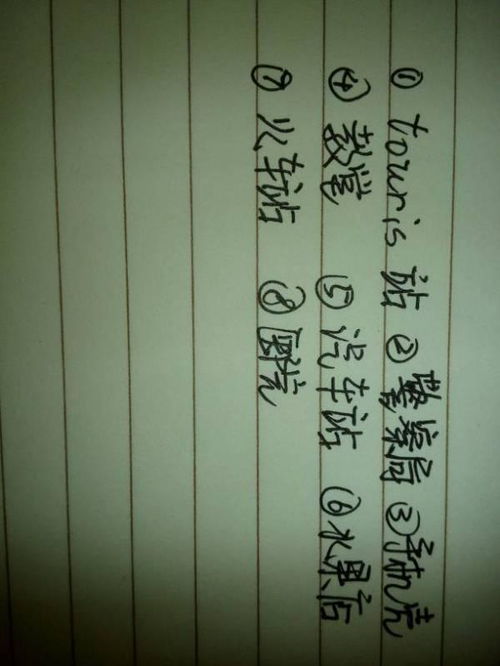 ① touris 站 ② 警察局 ③ 手机壳
④ 教堂 ⑤ 汽车站 ⑥ 水果店
⑦ 火车站 ⑧